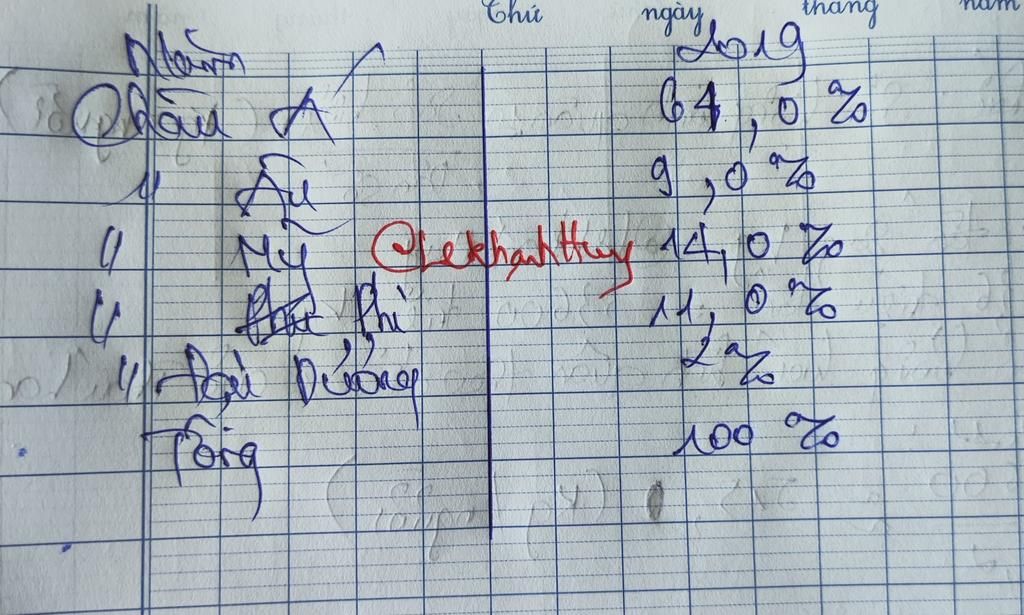 Thứ ngày tháng năm
Năm 2019
Châu Á 64,0 %
" Âu 9,0 %
" Mỹ Lekhanhthuy 14,0 %
" Phi 11,0 %
" Đại Dương 2 %
Tổng 100 %